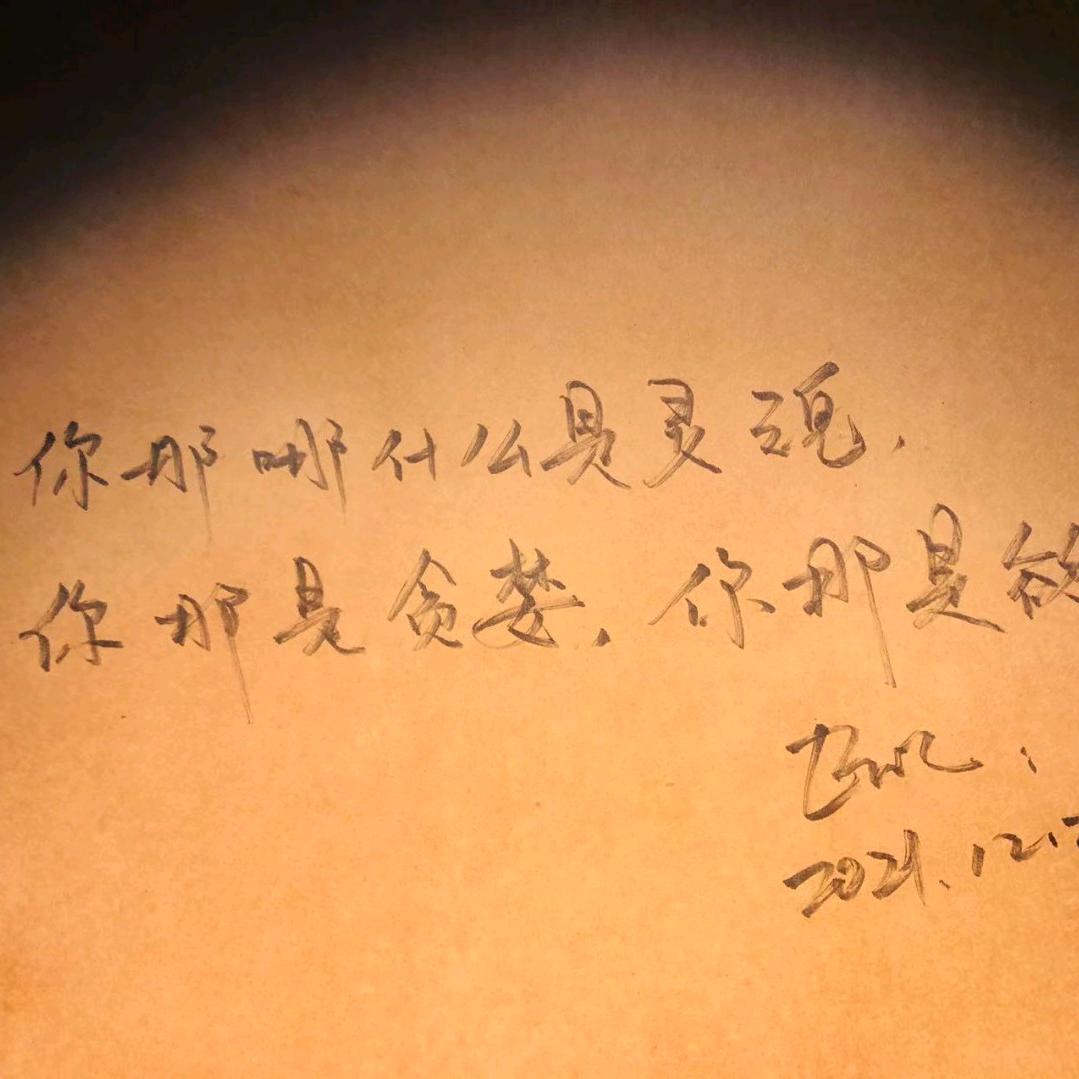 你那哪什么是灵魂,
你那是贪婪,你那是
2021.12.